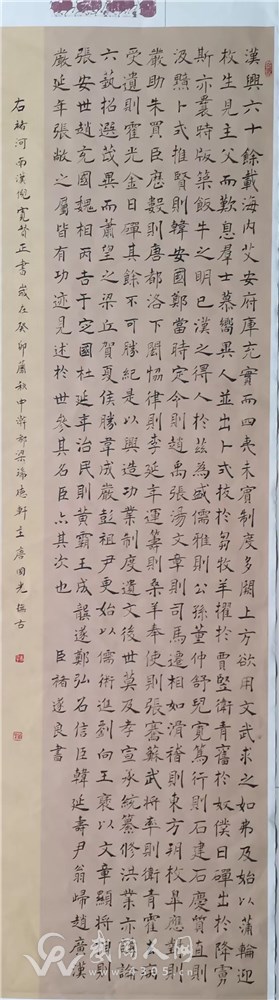 漢興六十餘載海内艾安府庫充實而四夷未賓制度多闕上方欲用文武求之如弗及始以蒲輪迎
枚生見主父而歎息羣士慕嚮異人並出卜式拔於芻牧羊擢於賈豎衛青奮於奴僕日磾出於降虜
斯亦曩時版築飯牛之明已漢之得人於茲為盛儒雅則公孫董仲舒兒寬篤行則石建石慶質直則
汲黯卜式推賢則韓安國鄭當時定令則趙禹張湯文章則司馬遷相如滑稽則東方朔枚皋應對則
嚴助朱買臣歷數則唐都洛下閎恊律則李延年運籌則桑羊奉使則張騫蘇武將率則衛青霍去病
受遺則霍光金日磾其餘不可勝紀是以興造功業制度遺文後世莫及孝宣承統纂修洪業亦講論
六藝招選茂異而蕭望之梁丘賀夏侯勝韋成嚴彭祖尹更始以儒術進劉向王褒以文章顯將相則
張安世趙充國魏相丙吉于定國杜延年治民則黃霸王成龔遂鄭弘召信臣韓延壽尹翁歸趙廣漢
嚴延年張敞之屬皆有功迹見述於世參其名臣亦其次也 臣褚遂良書
右褚河南漢倪寬贊正書歲在癸卯蕭秋中澣 梁瑞 軒主唐國光臨古